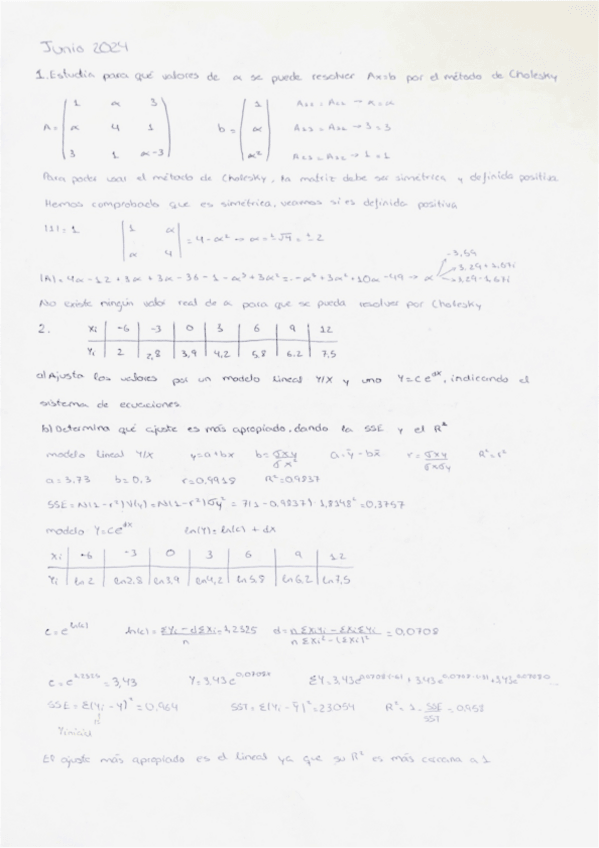 Junio 2024
1. Estudia para qué valores de α se puede resolver Ax=b por el método de Cholesky
A = ( 1 α 3 ; α 4 1 ; 3 1 α-3 ) b = ( 1 ; α ; α² )
Para poder usar el método de Cholesky, la matriz debe ser simétrica y definida positiva
Hemos comprobado que es simétrica, veamos si es definida positiva
|1| = 1 | 1 α ; α 4 | = 4-α² → α = ±√4 = ±2
|A| = 4α-12+3α+3α-36-1-α³+3α² = -α³+3α²+10α-49 → α
No existe ningún valor real de α para que se pueda resolver por Cholesky
2. Xi | -6 | -3 | 0 | 3 | 6 | 9 | 12
Yi | 2 | 2,8 | 3,9 | 4,2 | 5,8 | 6,2 | 7,5
a) Ajusta los valores por un modelo lineal Y/X y uno Y=ce^dx, indicando el
sistema de ecuaciones
b) Determina qué ajuste es más apropiado, dando la SSE y el R²
modelo lineal Y/X y=a+bx b=σxy/σx² a=ȳ-bx̄ r=σxy/σxσy R²=r²
a=3.73 b=0.3 r=0,9918 R²=0.9837
SSE=N(1-r²)V(y)=N(1-r²)σy²=7(1-0.9837)·1,8148²=0.3757
modelo Y=ce^dx ln(Y)=ln(c)+dx
Xi | -6 | -3 | 0 | 3 | 6 | 9 | 12
Yi | ln2 | ln2,8 | ln3,9 | ln4,2 | ln5,8 | ln6.2 | ln7,5
c=e^ln(c) ln(c)=ΣYi-dΣXi/n=1,2325 d=nΣXiYi-ΣXiΣYi/nΣXi²-(ΣXi)²=0,0708
=3,43
SSE=Σ(Yi-Y)²=0.964 SST=Σ(Yi-Ȳ)²=23054 R²=1-SSE/SST=0.958
El ajuste más apropiado es el lineal ya que su R² es más cercana a 1